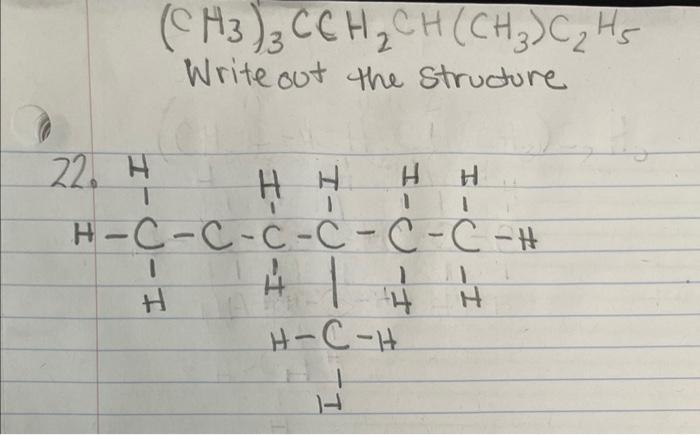 (CH3)3CCH2CH(CH3)C2H5
Write out the structure
22. H
H H H H
H-C-C-C-C-C-C-H
H H H H
H-C-H
H